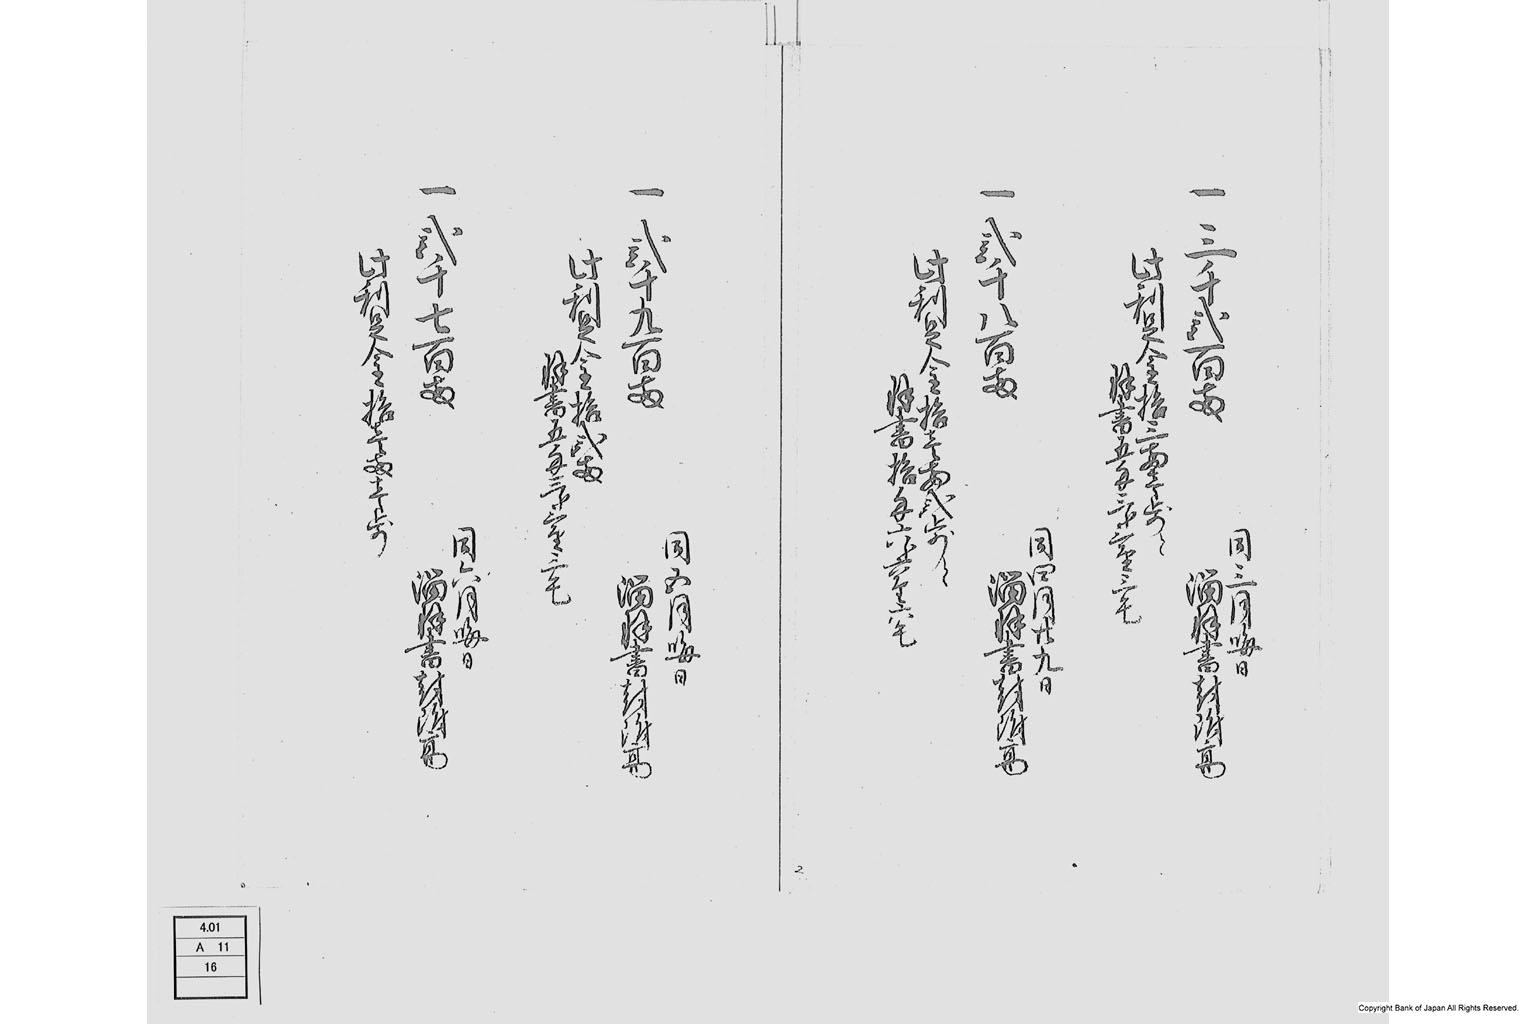 同三月晦日
一 三千弐百両
溜羽書封附高
此利足金拾三両壱歩と
羽書五匁三分三厘三毛
同四月廿九日
一 弐千八百両
溜羽書封附高
此利足金拾壱両弐歩と
羽書拾匁六分六厘六毛
同五月晦日
一 弐千九百両
溜羽書封附高
此利足金拾弐両
羽書五匁三分三厘三毛
同六月晦日
一 弐千七百両
溜羽書封附高
此利足金拾壱両壱歩
2
4.01
A 11
16
Copyright Bank of Japan All Rights Reserved.